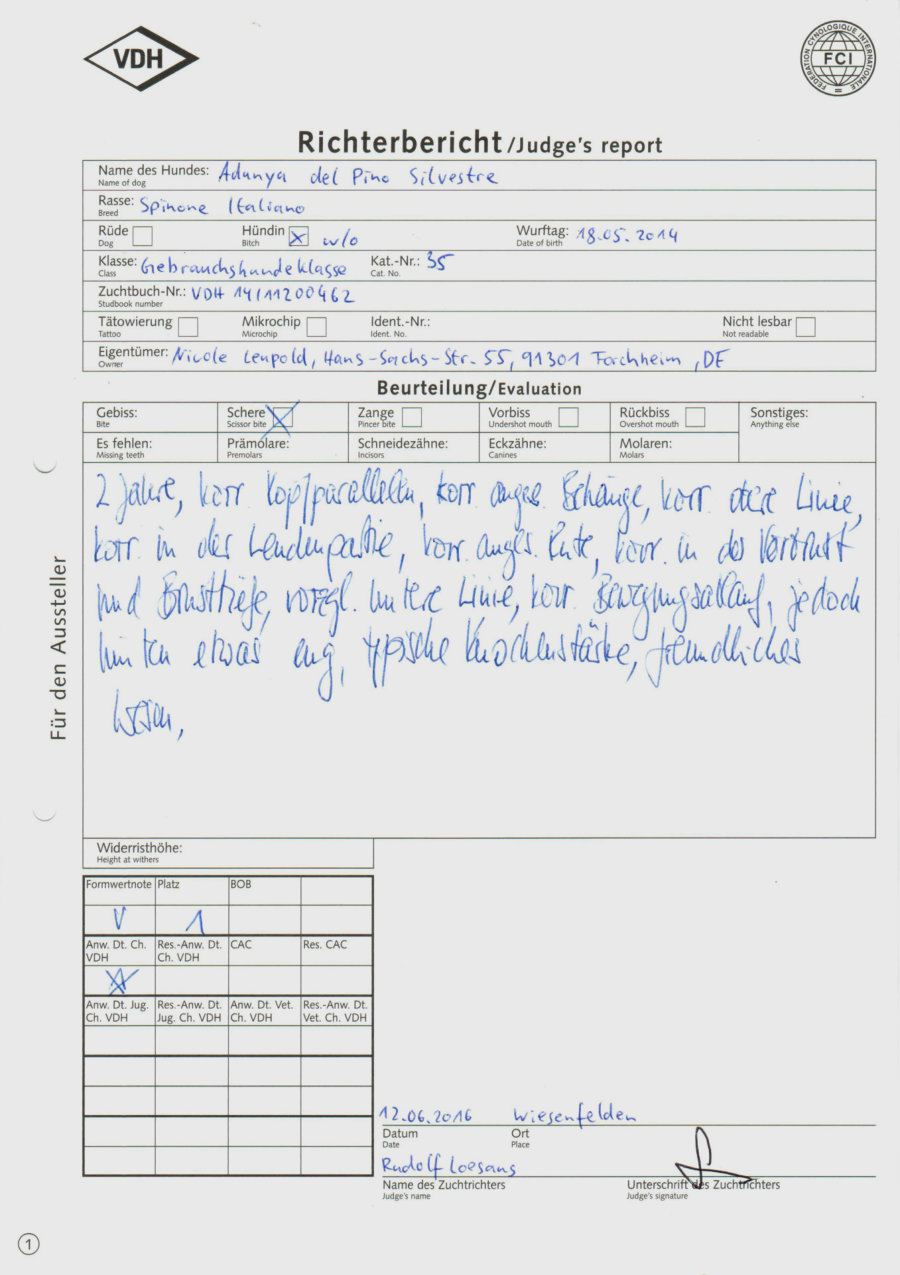 VDH
FEDERATION CYNOLOGIQUE INTERNATIONALE
FCI
Richterbericht/Judge's report
Name des Hundes: Adunya del Pino Silvestre
Name of dog
Rasse: Spinone Italiano
Breed
Rüde Hündin w/o Wurftag: 18.05.2014
Dog Bitch Date of birth
Klasse: Gebrauchshundeklasse Kat.-Nr.: 35
Class Cat. No.
Zuchtbuch-Nr.: VDH 14/11200462
Studbook number
Tätowierung Mikrochip Ident.-Nr.: Nicht lesbar
Tattoo Microchip Ident. No. Not readable
Eigentümer: Nicole Leupold, Hans-Sachs-Str. 55, 91301 Forchheim, DE
Owner
Beurteilung/Evaluation
Gebiss: Schere Zange Vorbiss Rückbiss Sonstiges:
Bite Scissor bite Pincer bite Undershot mouth Overshot mouth Anything else
Es fehlen: Prämolare: Schneidezähne: Eckzähne: Molaren:
Missing teeth Premolars Incisors Canines Molars
2 Jahre, korr. Kopfparallelen, korr. anges. Behänge, korr. obere Linie,
korr. in der Lendenpartie, korr. anges. Rute, korr. in der Vorbrust
und Brusttiefe, vorzgl. untere Linie, korr. Bewegungsablauf, jedoch
hinten etwas eng, typische Knochenstärke, freundliches
Wesen,
Für den Aussteller
Widerristhöhe:
Height at withers
Formwertnote Platz BOB
V 1
Anw. Dt. Ch. VDH Res.-Anw. Dt. Ch. VDH CAC Res. CAC
Anw. Dt. Jug. Ch. VDH Res.-Anw. Dt. Jug. Ch. VDH Anw. Dt. Vet. Ch. VDH Res.-Anw. Dt. Vet. Ch. VDH
12.06.2016 Wiesenfelden
Datum Ort
Date Place
Rudolf Loesans
Name des Zuchtrichters Unterschrift des Zuchtrichters
Judge's name Judge's signature
1